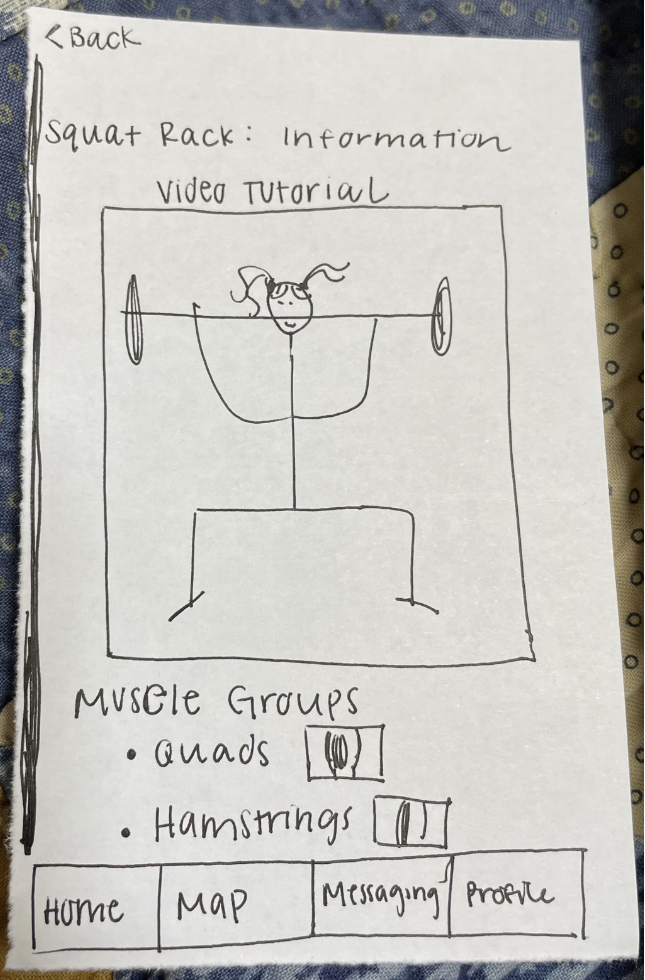 < Back
Squat Rack: Information
Video Tutorial
Muscle Groups
• Quads
• Hamstrings
Home Map Messaging Profile